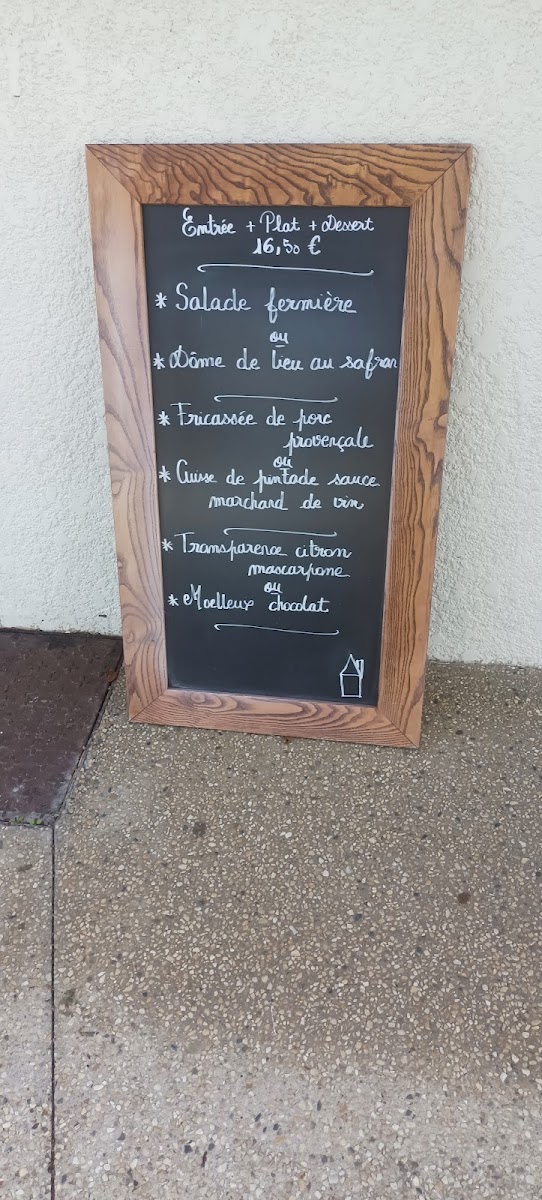 Entrée + Plat + Dessert
16,50 €
* Salade fermière
ou
* Dôme de lieu au safran
* Fricassée de porc
provençale
ou
* Cuisse de pintade sauce
marchand de vin
* Transparence citron
mascarpone
ou
* Moelleux chocolat